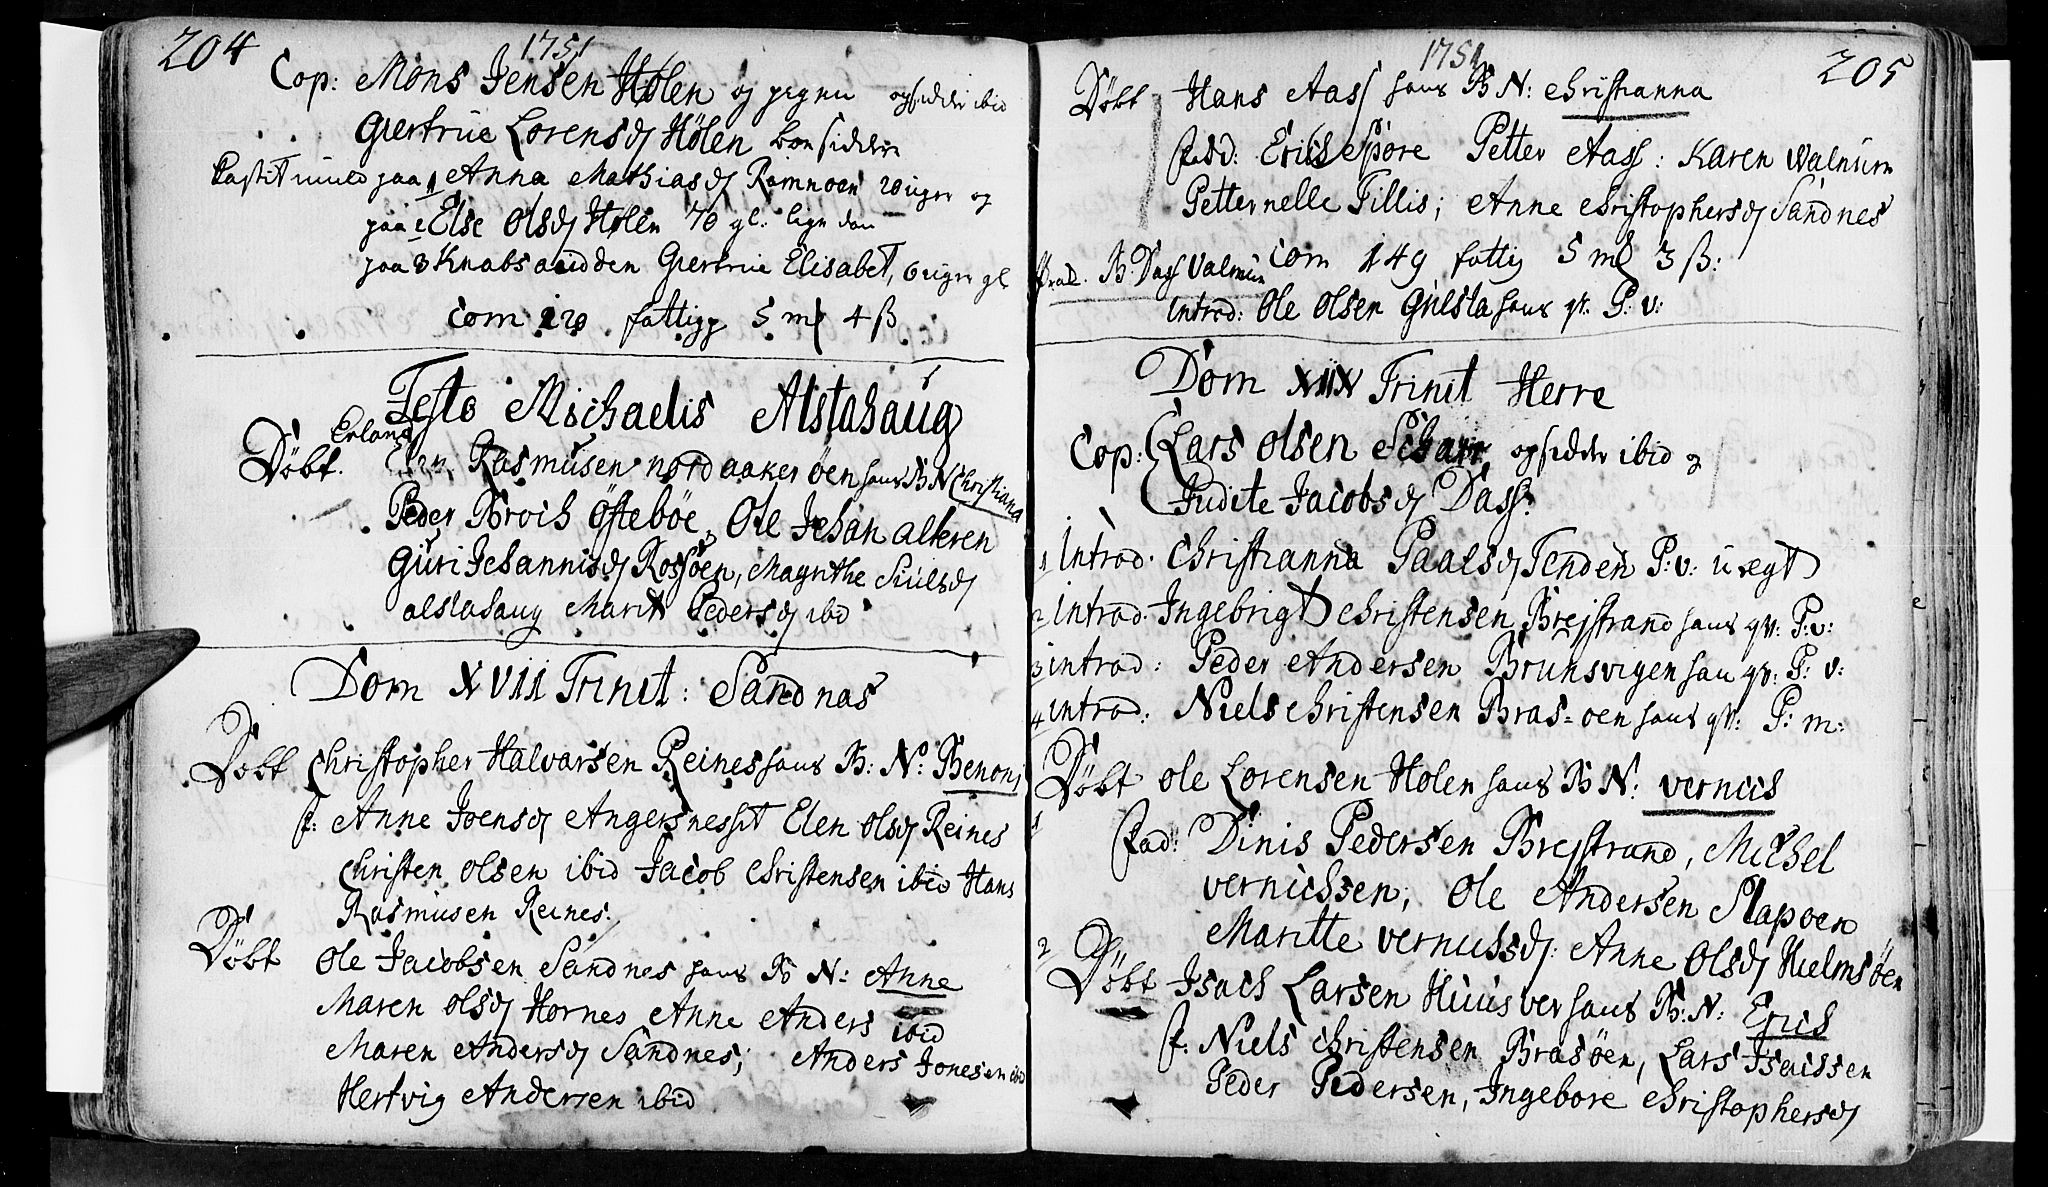 204
1751
Cop: Mons Jensen Hølen og pigen opsidder ibid
Giertrue Lorensd Hølen bonsidder
paa 1 Anna Mathiasd Ramnoen 20 uger og
paa 2 Else Olsd Holen 70 gl: lign den
paa 3 Knabs Giertrue Elisabet, 6 uger gl
com 120 fattig 5 ml 4 ß
Festo Michaelis Alstahaug
Erland
Døbt. Rasmusen nordaakerøen hans B N Christiana
Peder Broch Østebøe, Ole Johan alteren
Guri Johannisd Rossøen, Magrethe
alstahaug Marit Pedersd ibd
Dom XVII Trinit: Sandnas
Døbt Christopher Halvarsen Reines hans B: N: Benoni
f: Anne Joensd Angersnesset Elen Olsd Reines
Christen Olsen ibid Jacob Christensen ibid Hans
Rasmusen Reines.
Døbt Ole Jacobsen Sandnes hans B N: Anne
Maren Olsd Hornes Anne Anders ibid
Maren Andersd Sandnes; Anders Jonesen ibd
Hertvig Andersen ibid
1751
205
Døbt Hans Aass hans B N: Christianna
fad: Erich Spøre Petter Aass: Karen Walnum
Petternelle Tillis; Anne Christophersd Sandnes
Præd. B: Dass Valnum com 149 fattig 5 ml 3 ß:
Introd: Ole Olsen Gulsta hans qv: P: v:
Dom XIIX Trinit Herre
Cop: Lars Olsen Schar, opsidder ibid og
Judite Jacobsd Dass:
1 Introd. Christianna Paalsd Tenden P: v: uægt
2 Introd. Ingebrigt Christensen Brejstrand hans qv: P: v:
3 introd: Peder Andersen Brunsvigen hans qv: P: v:
4 introd: Niels Christensen Bras=oen hans qv: P: m:
Døbt Ole Lorensen Holen hans B N: Vernics
1
fad: Dinis Pedersen Brejstrand, Michel
Vernichsen, Ole Andersen Slapoen
Maritte Vernussd: Anne Olsd Hielmsøen
2
Døbt Isach Larsen Huusver hans B: N: Erich
f: Niels Christensen Brasøen, Lars Isachsen
Peder Pedersen, Ingebore Christophersd